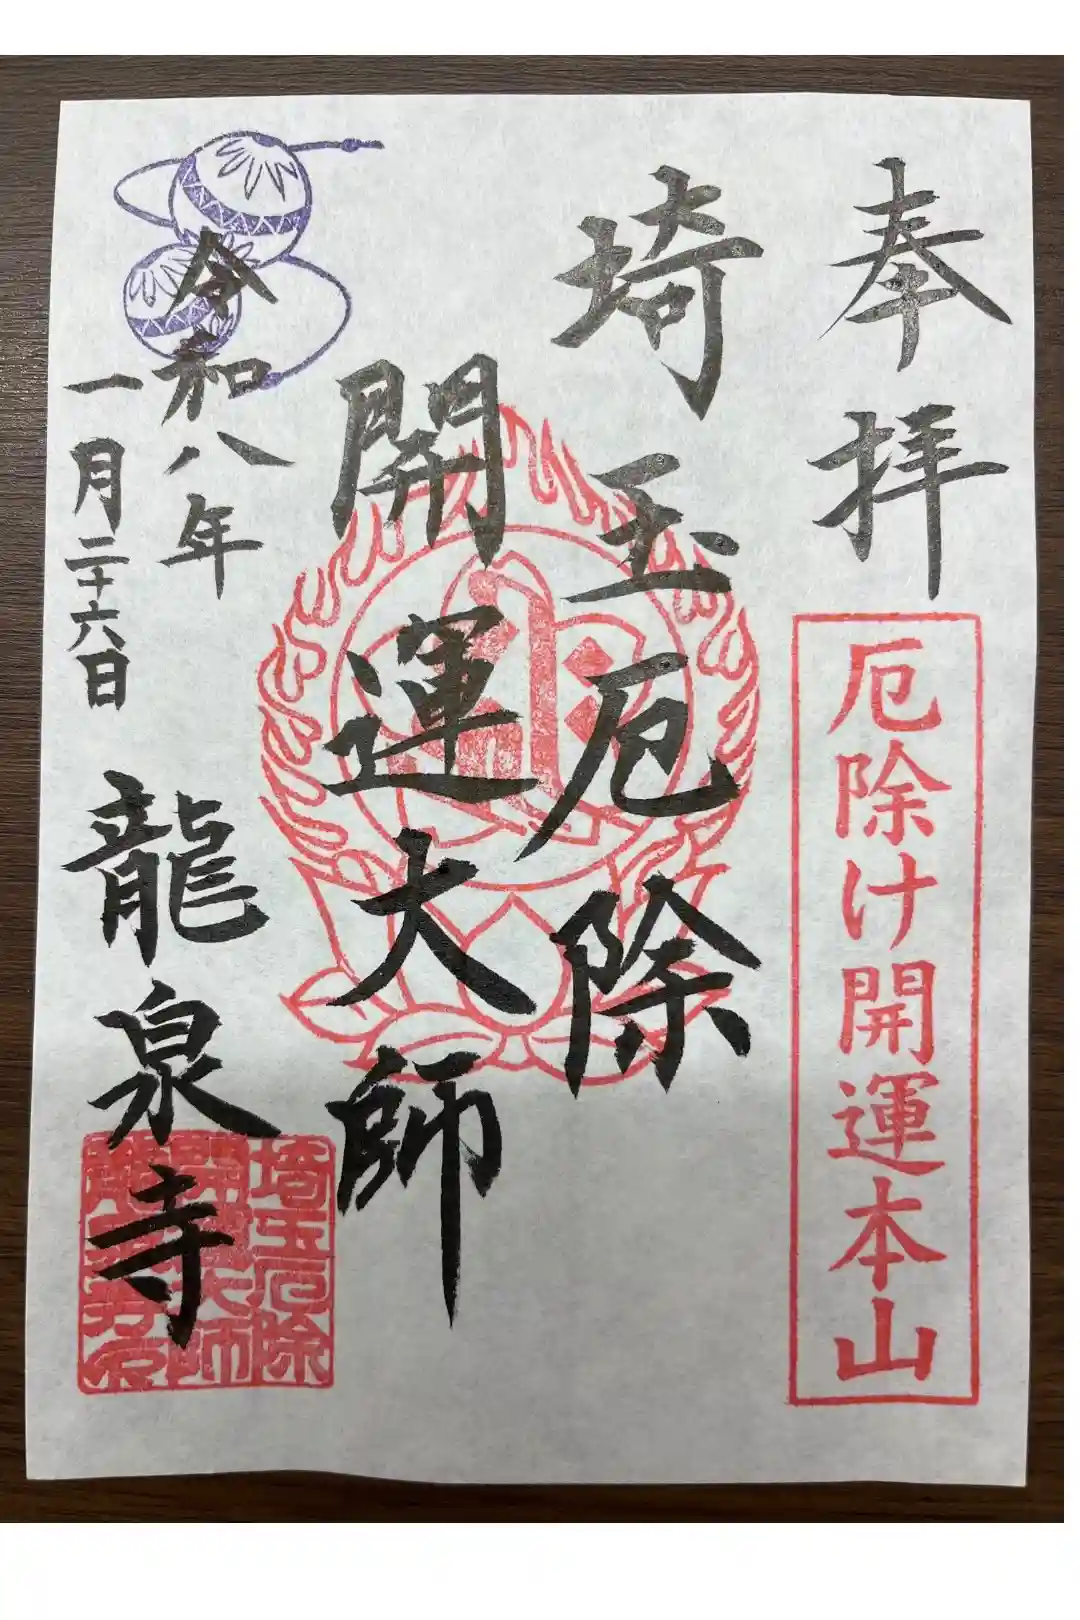 奉拝
厄除け開運本山
埼玉厄除
開運大師
令和八年
一月二十六日
龍泉寺
埼玉厄除
開運大師